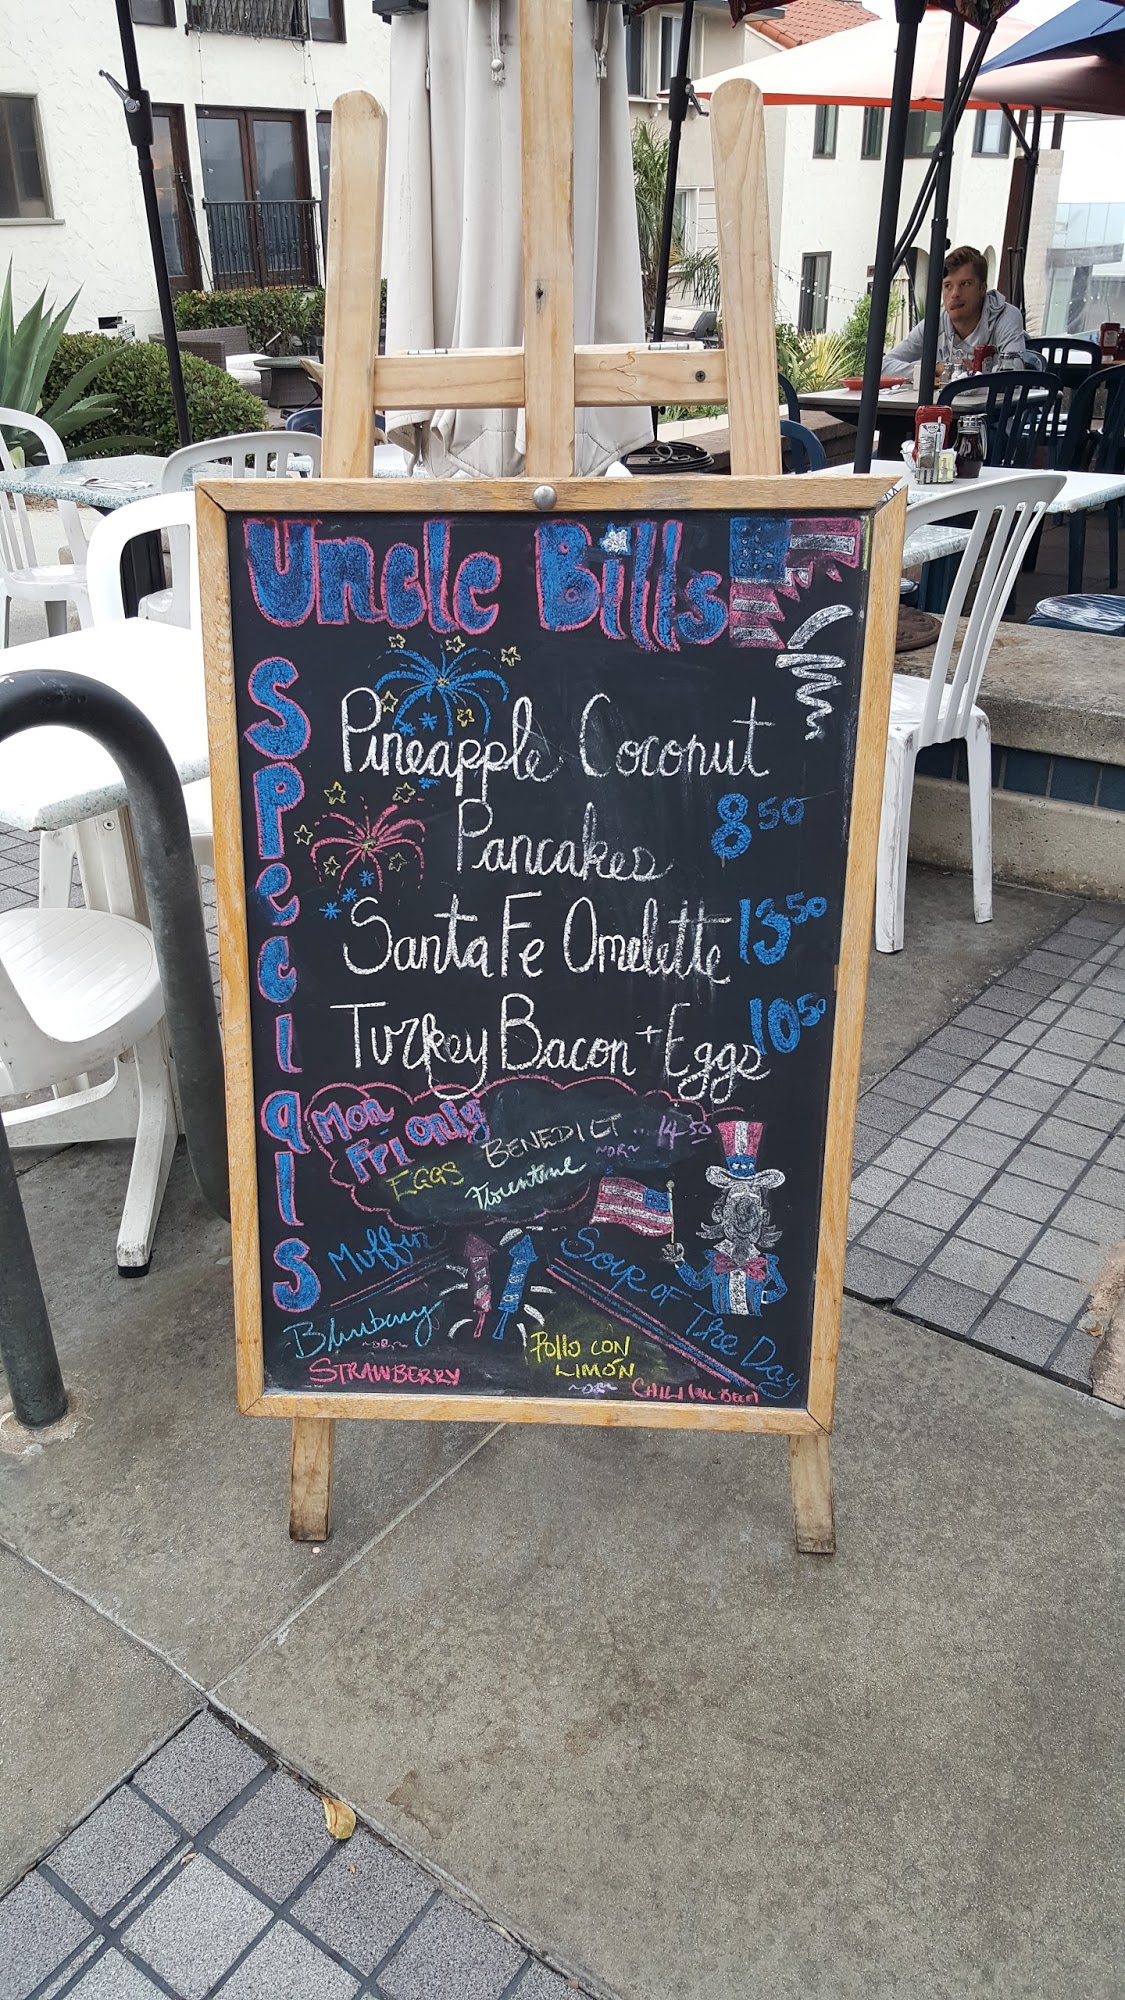 Uncle Bills
Specials
Pineapple Coconut
Pancakes 8.50
Santa Fe Omelette 13.50
Turkey Bacon + Eggs 10.50
Mon
Fri Only
EGGS BENEDICT ... 14.50
~OR~
Florentine
Muffin
Blueberry
~OR~
STRAWBERRY
Soup OF The Day
Pollo CON
LIMÓN
~OR~
CHILI (ALL BEEF)